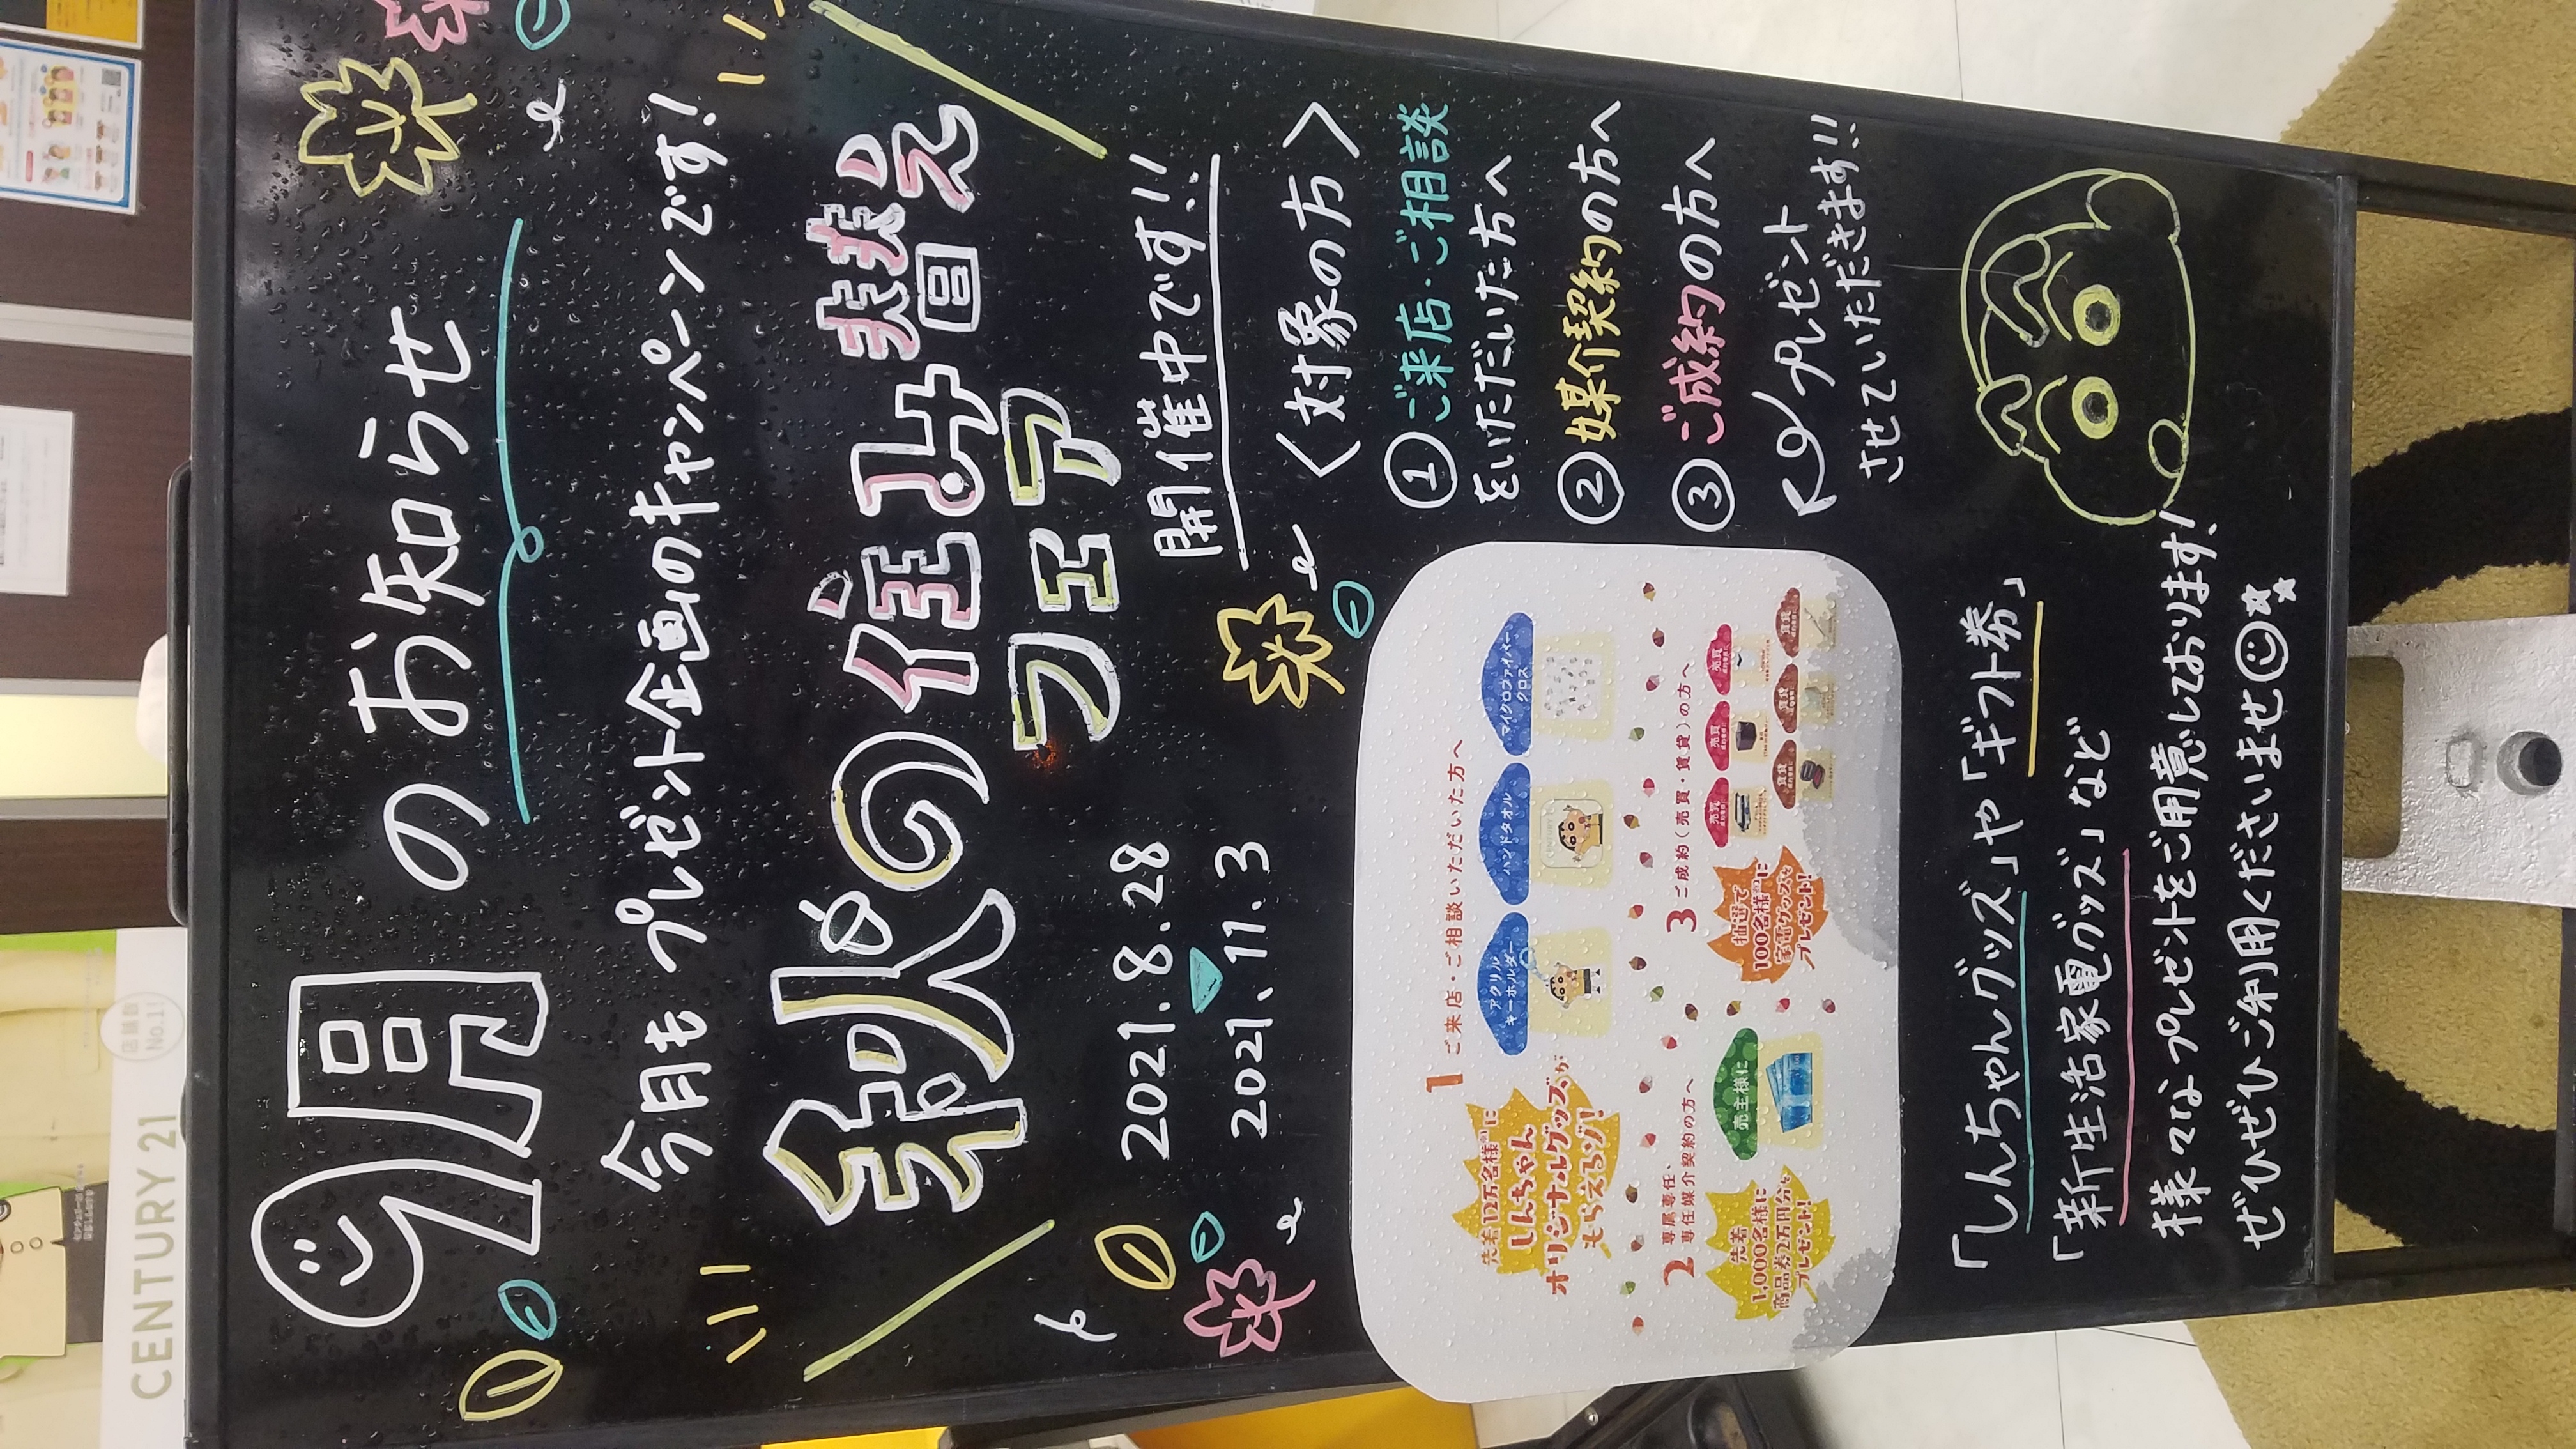 9月のお知らせ
今月もプレゼント企画のキャンペーンです！
秋の住み替え
フェア
2021.8.28
2021.11.3
開催中です!!
〈対象の方〉
①ご来店・ご相談
をいただいた方へ
②媒介契約の方へ
③ご成約の方へ
プレゼント
させていただきます!!
1 ご来店・ご相談いただいた方へ
先着12万名様に
しんちゃん
オリジナルグッズが
もらえるゾ!
アクリル
キーホルダー
ハンドタオル
マイクロファイバー
クロス
2 専属専任、
専任媒介契約の方へ
先着
1,000名様に
商品券2万円分を
プレゼント!
売主様に
3 ご成約(売買・賃貸)の方へ
抽選で
100名様に
家電グッズを
プレゼント!
売買
売買
売買
賃貸
賃貸
賃貸
「しんちゃんグッズ」や「ギフト券」
「新生活家電グッズ」など
様々なプレゼントをご用意しております!
ぜひぜひご利用くださいませ
CENTURY 21
店舗数
No.1!